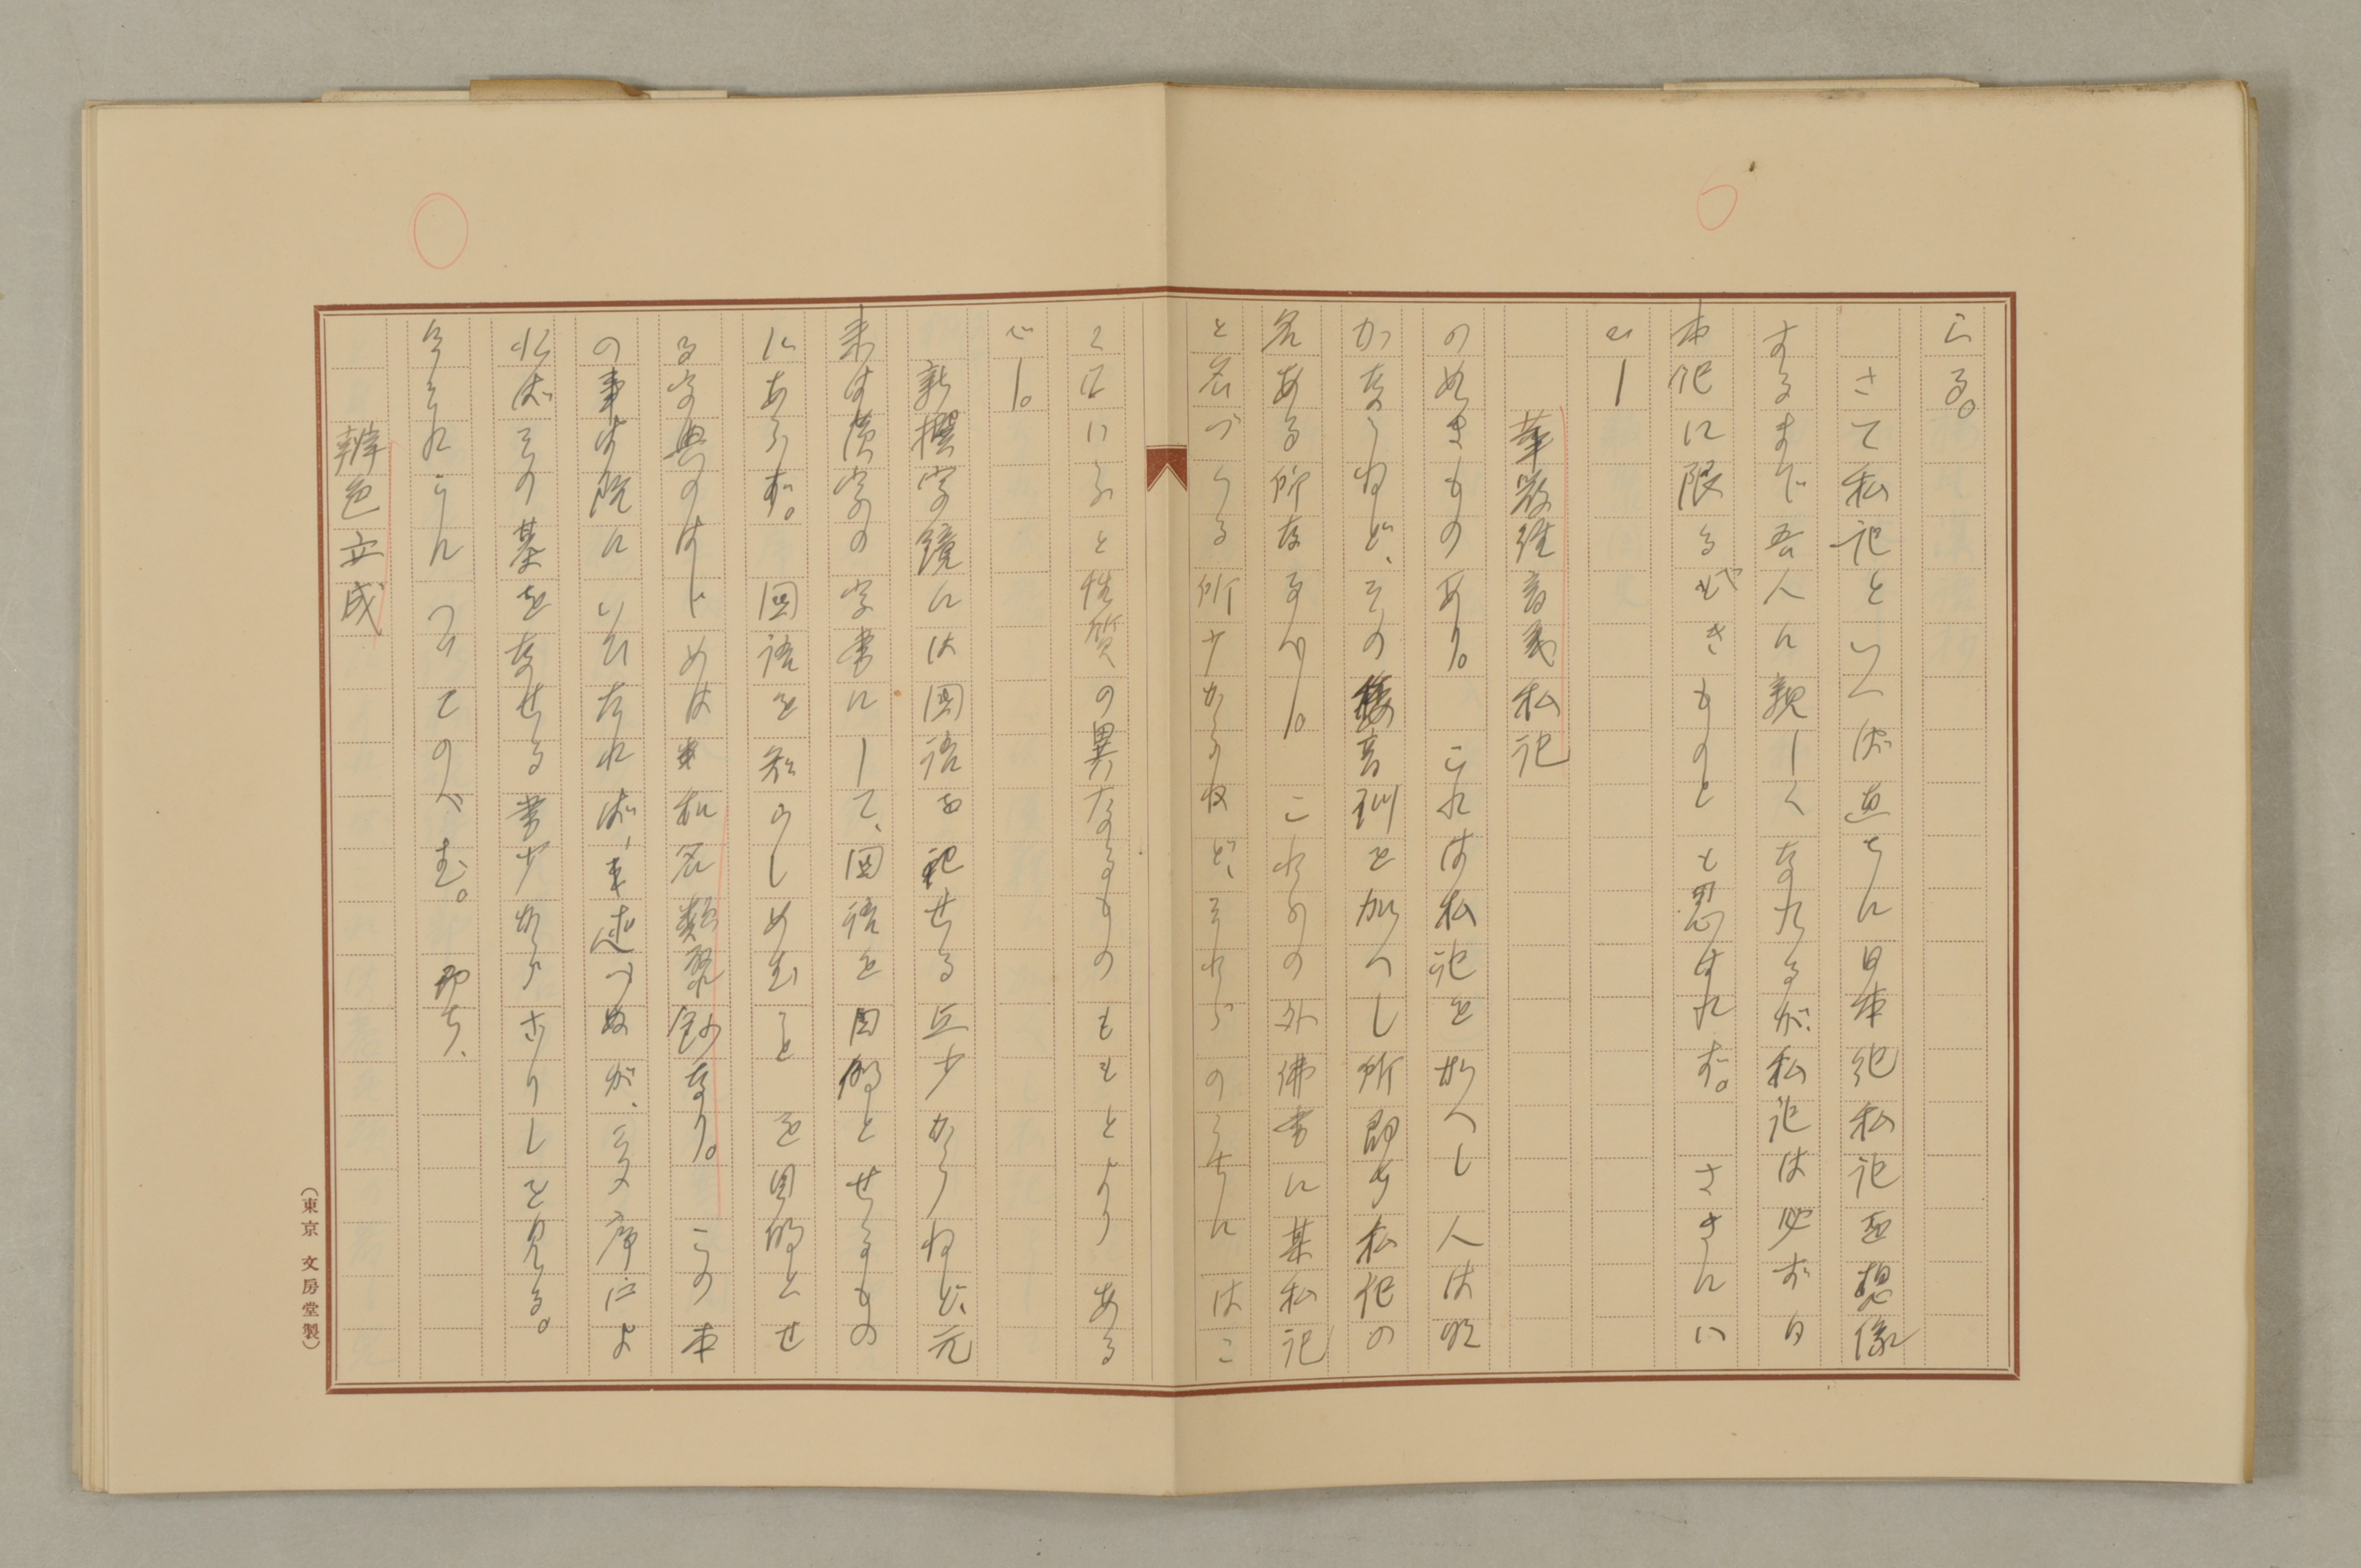 らる。
さて私記といへば直ちに日本紀私記を想像
するまで吾人に親しくなれるが、私記は必ず日
本紀に限るべきものとも思はれず。さきにい
ひし
華厳経音義私記
の如きものあり。これは私記を加へし人は明
かならねど、その音訓を加へし所即ち私記の
名ある所なるべし。これらの外佛書に某私記
と名づくる所少からねど、それらのうちには
こにいふと性質の異なるものももとよりある
べし。
新撰字鏡には国語を記せる点少からねど、元
来は漢字の字書にして、国語を目的とせるもの
にあらず。国語を知らしめむことを目的とせ
る字典のはじめは和名類聚鈔なり。この本
の事は既にいひたれば、述べぬが、その序によ
ればその基をなせる書少からざりしを見る。
今それらにつきてのべむ。即ち、
辨色立成
(東京 文房堂製)